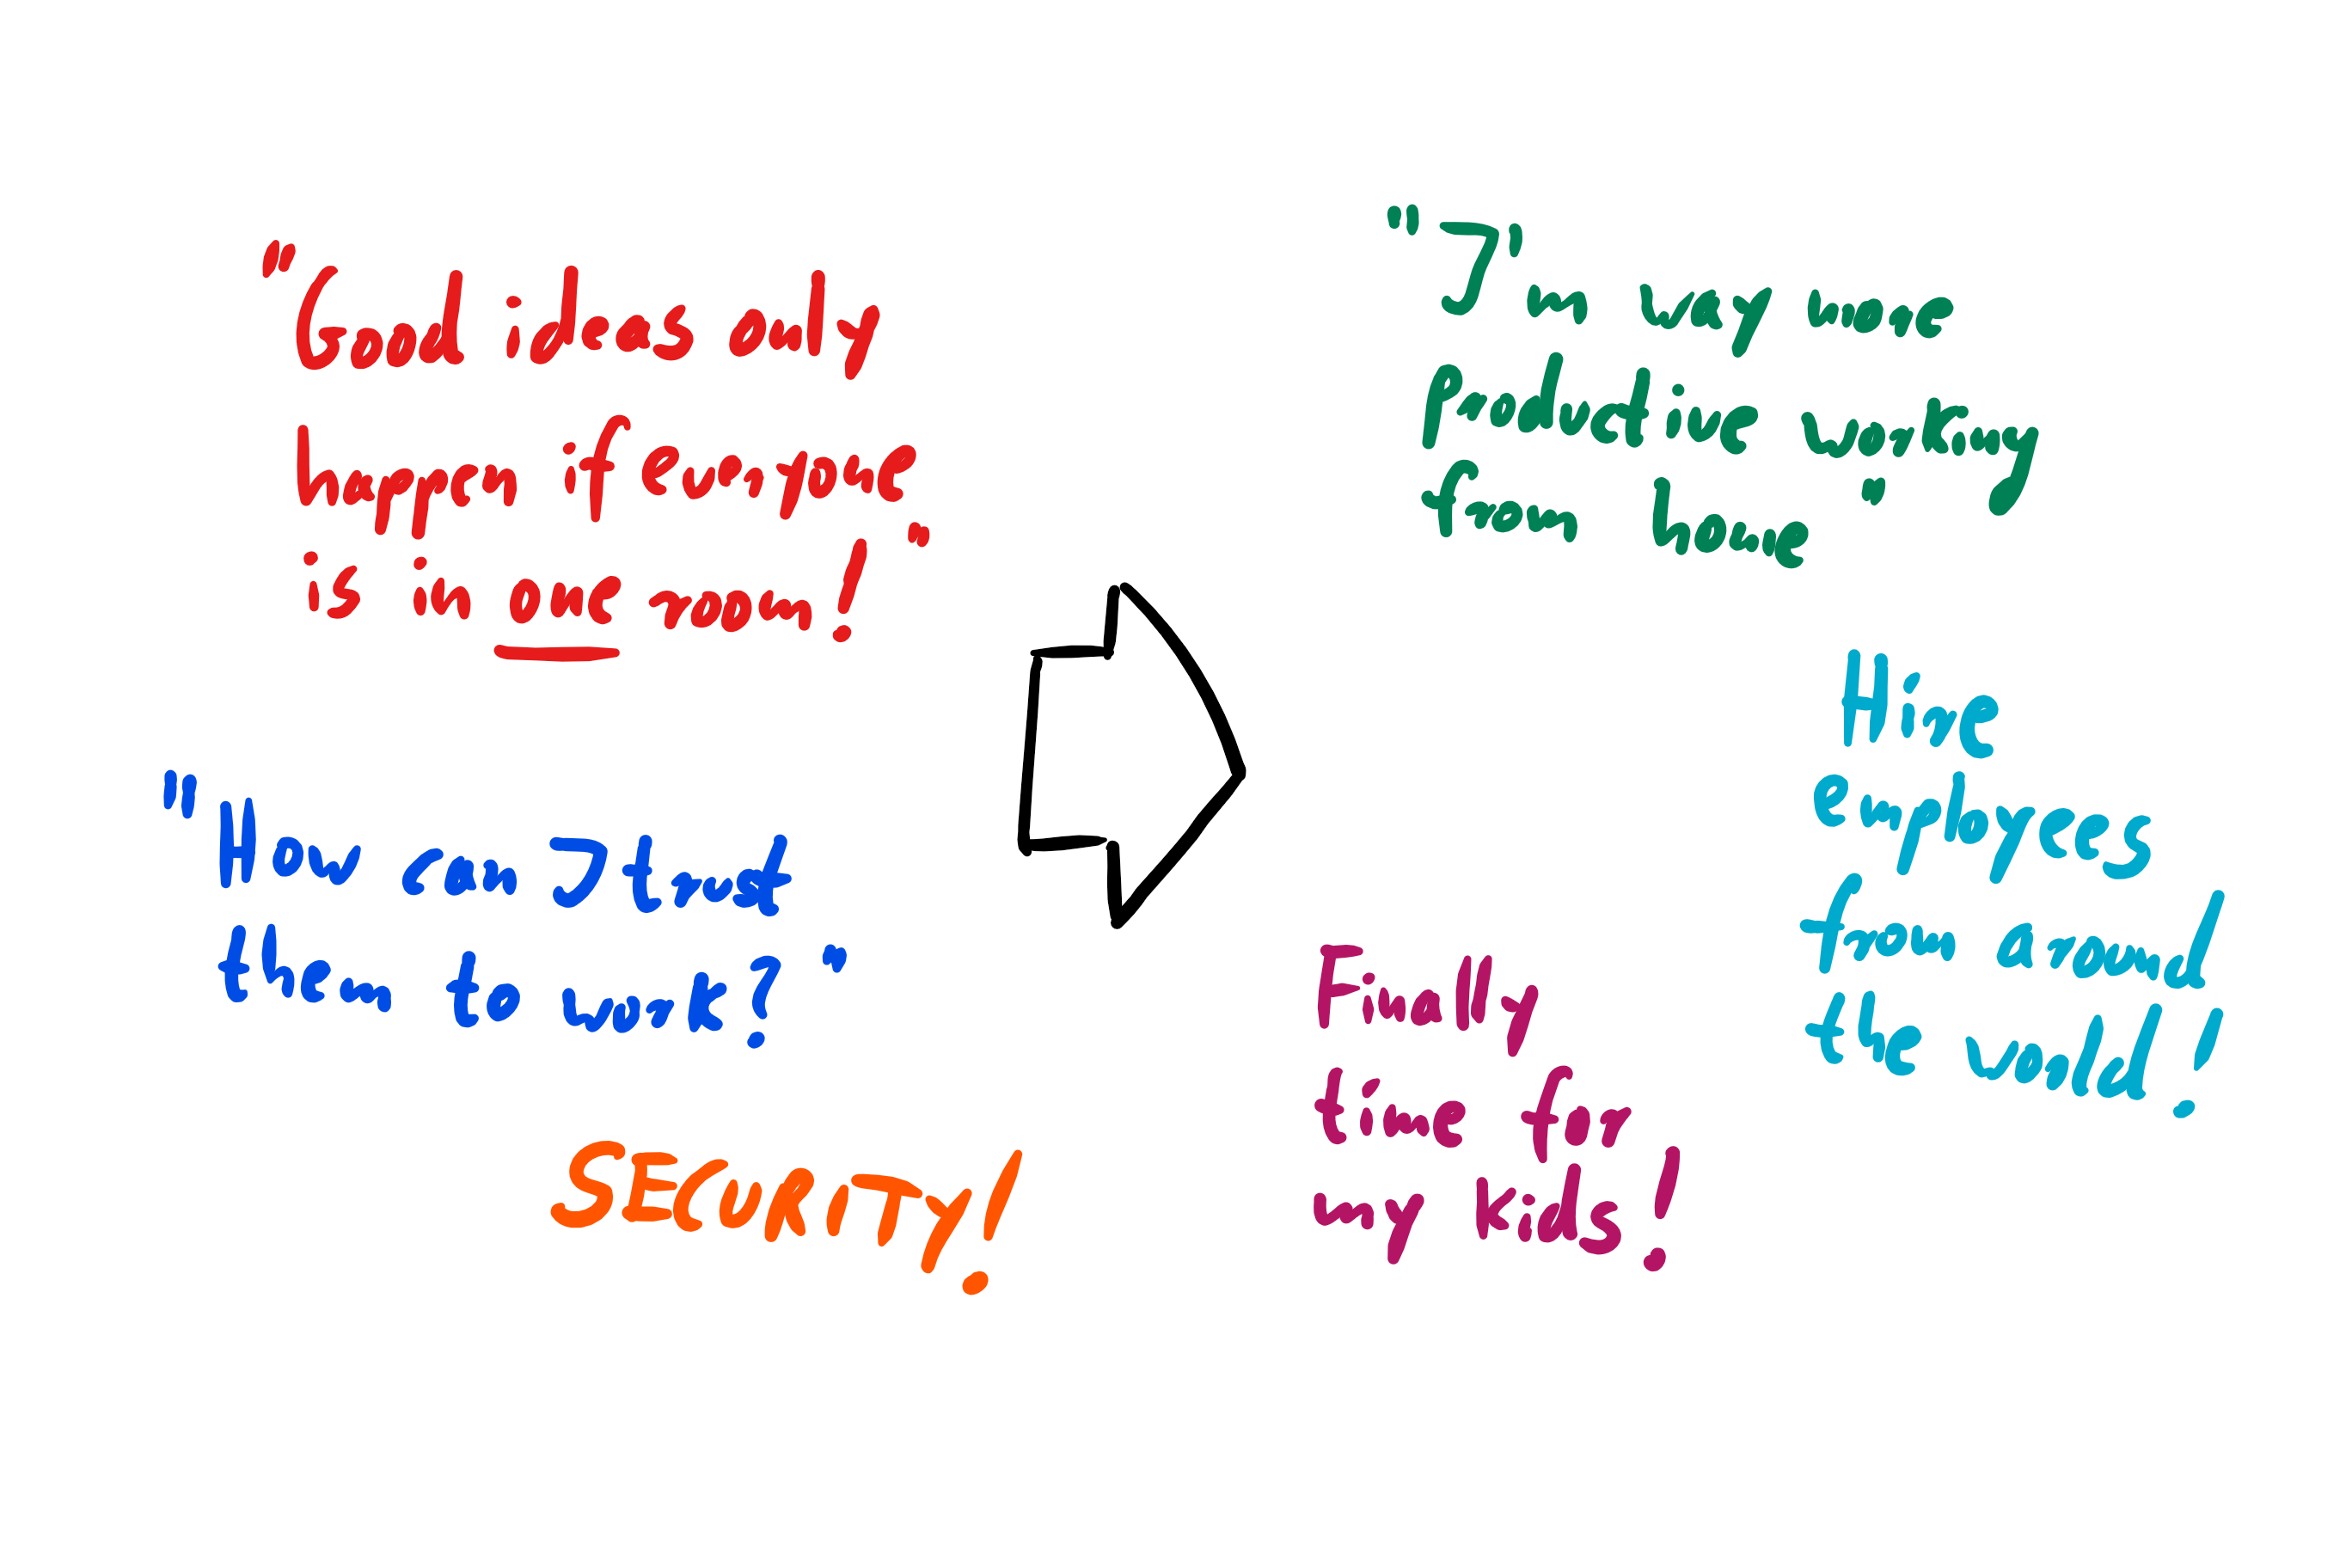 "Good ideas only
happen if everyone
is in one room!"
"How can I trust
them to work?"
SECURITY!
"I'm way more
productive working
from home"
Hire
employees
from around
the world!
Finally
time for
my kids!